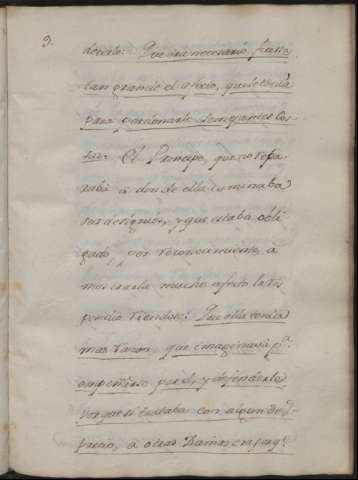 9.
decirle: Que era necesario fuesse
tan grande el afecto, que le tenia
para perdonarle semejantes co-
sas. El Principe, que no repa-
raba a donde ella caminaba
sus designios, y que estaba obli-
gado, por reconocimiento, à
mostrarle mucho afecto la res-
pondio riendose: Que ella tenia
mas razon, que imaginava pa.
empeñarse por el, y defenderle
porque si trataba con algun de-
precio, a otras Damas era porq.e